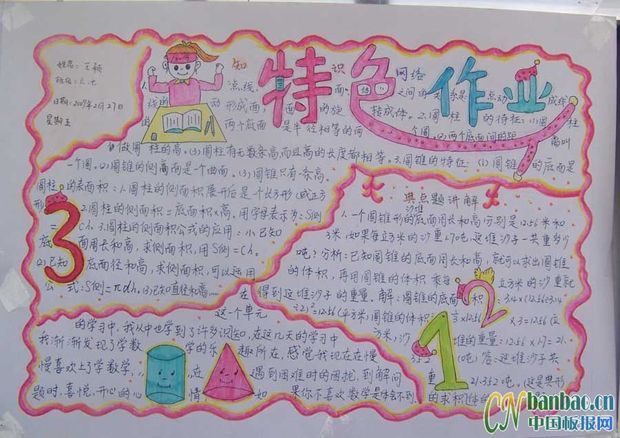 姓名:王颖
班级:六.七
日期:2009年2月27日
星期五
特色作业
知识网络
点、线、面、
之间的关系是:点动成线
线的动形成面
面的旋转成体。2.圆柱的特征:(1)圆柱
两个底面是半径相等的两个圆,(2)两个底面间的距
离叫
做圆柱的高。(3)圆柱有无数条高,而且高的长度都相等。3.圆锥的特征:(1)圆锥的底面是
一个圆。(2)圆锥的侧面是一个曲面。(3)圆锥只有一条高。
圆柱的表面积:1.圆柱的侧面积展开后是个长方形(或正方
形)
2.圆柱的侧面积=底面积×高,用字母表示为:S侧
=Ch。3.圆柱的侧面积公式的应用:(1)已知
底面周长和高,求侧面积,用S侧=Ch。
(2)已知底面直径和高,求侧面积,可以运用
公式:S侧=πdh。(3)已知直径和高
3
典点题讲解
沙堆
1.一个圆锥形的底面周长和高分别是12.56米和
3米。如果每立方米的沙重1.7吨,这堆沙子一共重多少
吨?分析:已知圆锥的底面周长和高,就可以求出圆锥
的体积,再用圆锥的体积乘每立方米的沙重就
得到这堆沙子的重量。解:圆锥的底面积:3.14×(12.56÷3.14
÷2)²=12.56(平方米)圆锥的体积:
×12.56×3=12.56(立
方米)沙堆的重量:12.56×1.7=21.
352(吨)答:这堆沙子共
重21.352吨。
的求积
2
1
在这个单元
的学习中,我从中也学到了许多知识,在这几天的学习中
我渐渐发现了学数学的乐趣所在,感觉我现在在慢
慢喜欢上学数学,在遇到困难时的困扰,到解问
题时,喜悦,开心的心情,如果你不喜欢数学是体会不到
CN banbao.cn
中国板报网